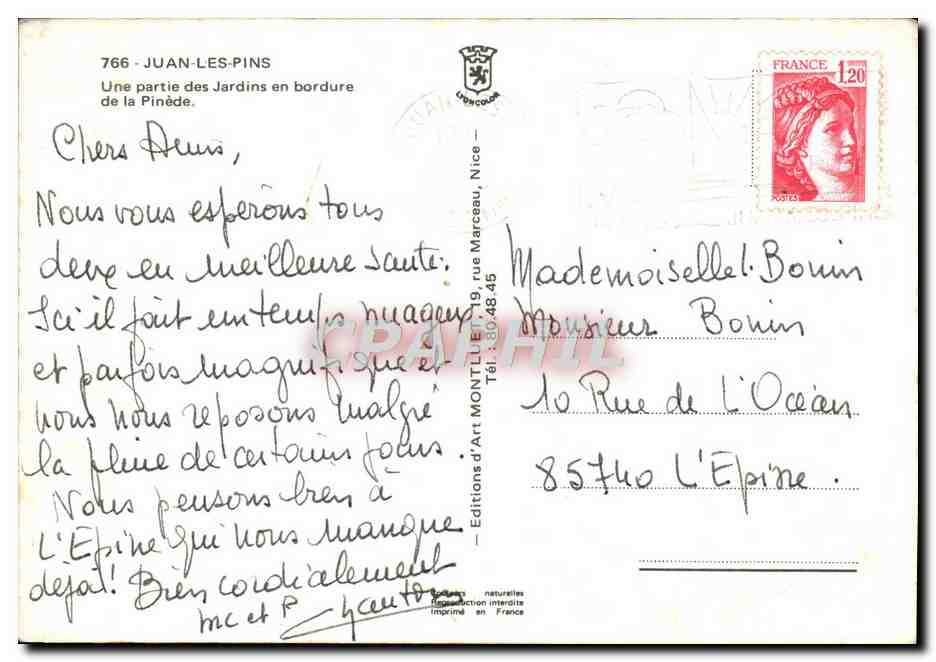 766 - JUAN-LES-PINS
Une partie des Jardins en bordure
de la Pinède.
Chers Amis,
Nous vous espérons tous
deux en meilleure santé.
Ici il fait un temps nuageux
et parfois magnifique et
nous nous reposons malgré
la pluie de certains jours.
Nous pensons bien à
L'Epine qui nous manque
déjà! Bien cordialement
mc et P
LYONCOLOR
— Editions d'Art MONTLUET, 19, rue Marceau, Nice —
Tél. : 80.48.45
FRANCE 1,20
POSTES
Mademoiselle L. Bonin
Monsieur Bonin
10 Rue de L'Océan
85740 L'Epine.
CPAPHIL
Couleurs naturelles
Reproduction interdite
Imprimé en France